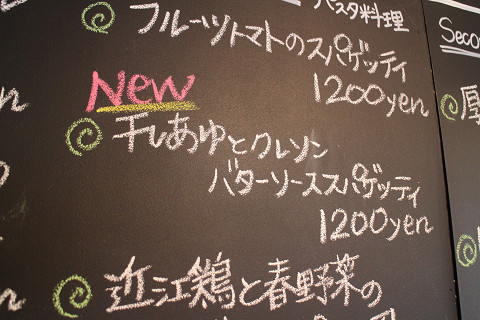 パスタ料理
フルーツトマトのスパゲッティ
1200yen
New
干しあゆとクレソン
バターソーススパゲッティ
1200yen
近江鶏と春野菜の